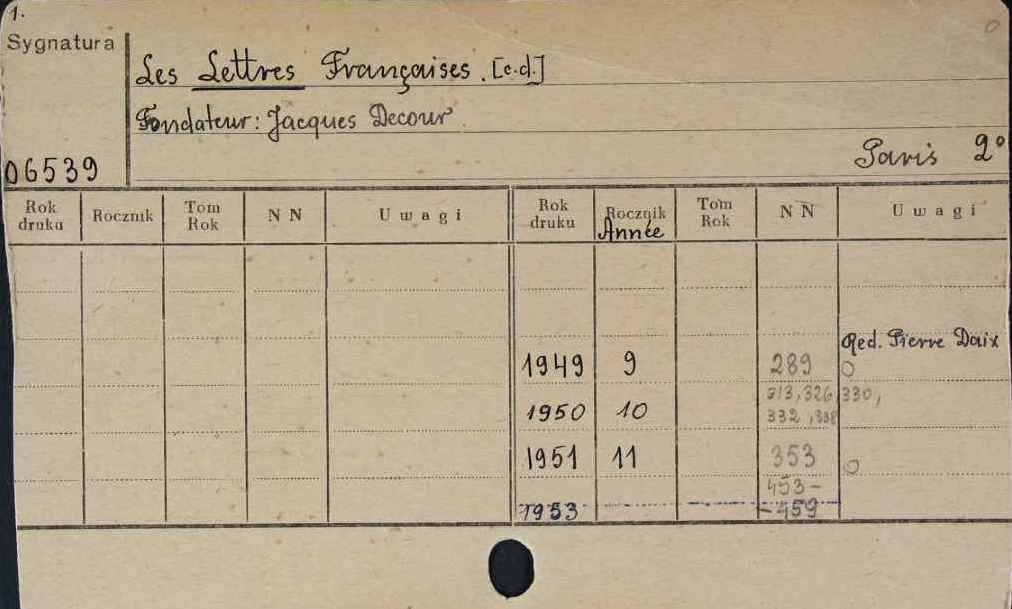 1.
Sygnatura
Les Lettres Françaises. [c.d.]
Fondateur: Jacques Decour
Paris 2°
06539
Rok druku Rocznik Tom Rok N N Uwagi Rok druku Rocznik Année Tom Rok N N Uwagi
Red. Pierre Daix
1949 9 289 O
313, 326, 330,
1950 10 332, 338
1951 11 353 O
453-
1953 -459